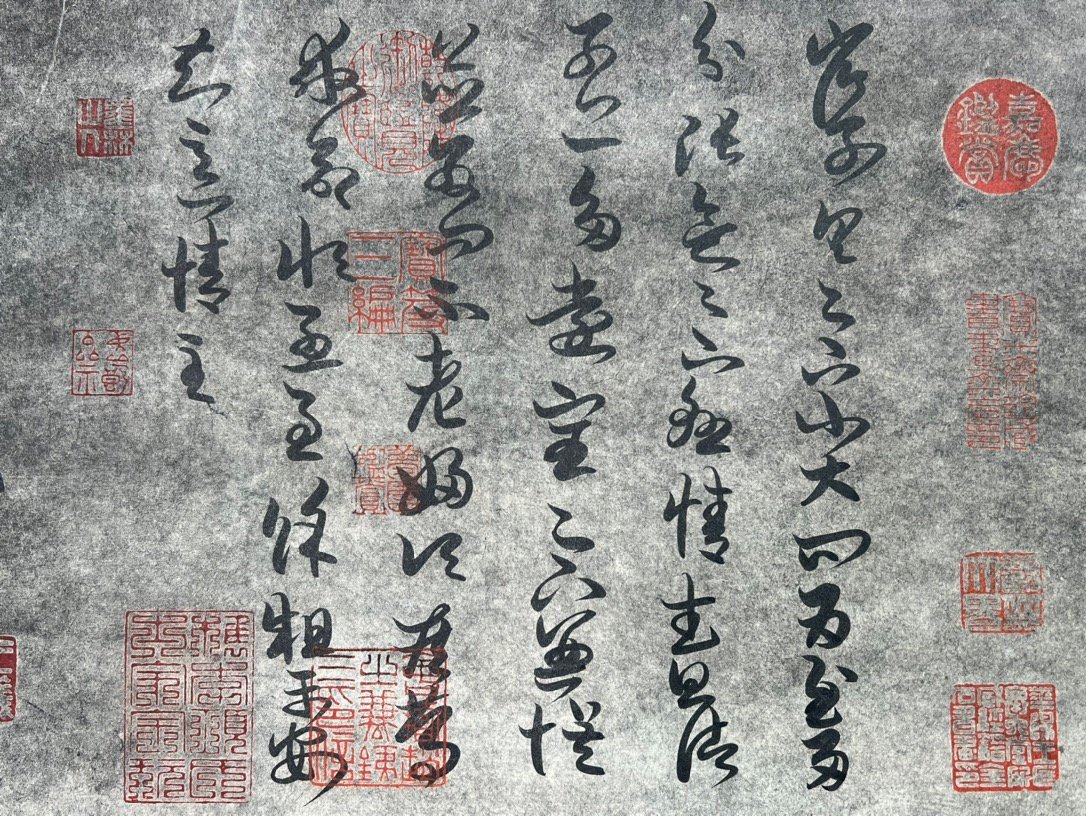 嘉慶鑑賞
省別具足下小大問為慰多
分張念足下懸情武昌諸
子亦多遠宦足下兼懷
並數問不老婦頃疾篤
救命恒憂慮餘粗平安
知足下情至
寶笈三編